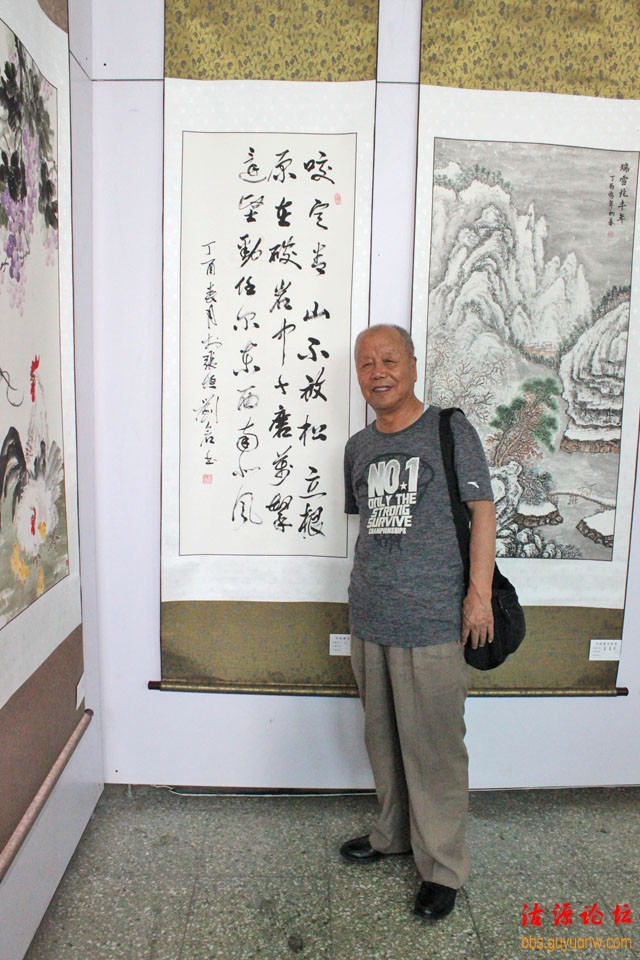 咬定青山不放松立根
原在破岩中千磨萬擊
这坚勁任尔東西南北风
丁酉春月
瑞雪兆丰年
丁酉
NO.1
ONLY THE
STRONG
SURVIVE
CHAMPIONSHIPS
沽源论坛
bbs.guyuanw.com